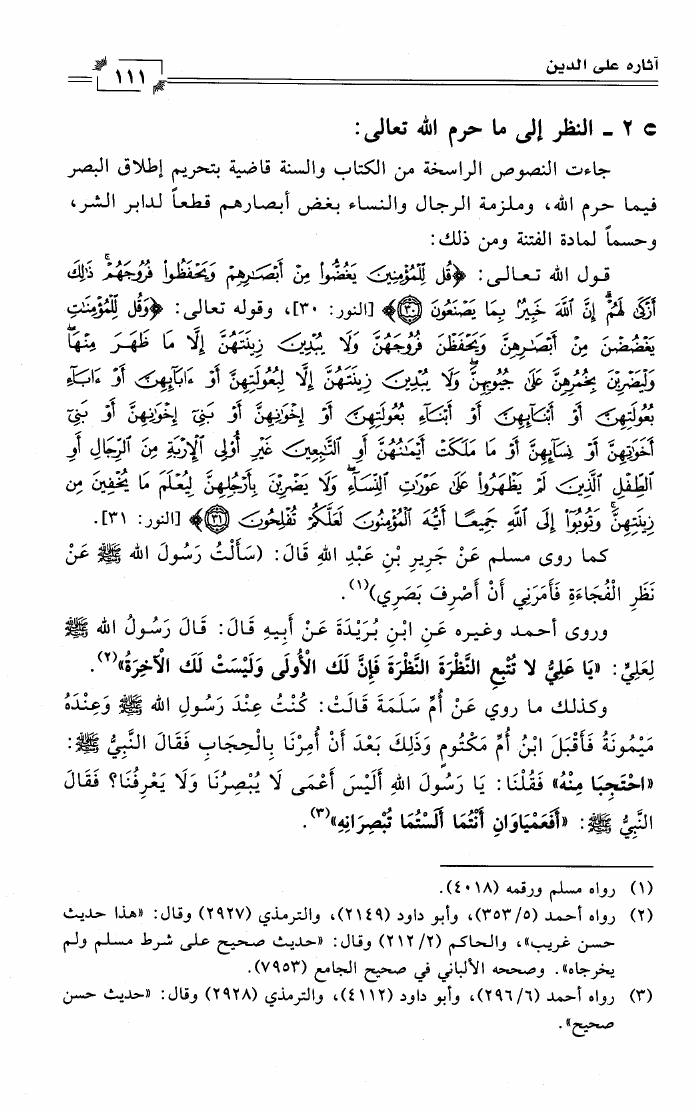 آثاره على الدين
١١١
٢ - النظر إلى ما حرم الله تعالى:
جاءت النصوص الراسخة من الكتاب والسنة قاضية بتحريم إطلاق البصر
فيما حرم الله، وملزمة الرجال والنساء بغض أبصارهم قطعاً لدابر الشر،
وحسماً لمادة الفتنة ومن ذلك:
قول الله تعالى: ﴿قُل لِّلْمُؤْمِنِينَ يَغُضُّوا۟ مِنْ أَبْصَٰرِهِمْ وَيَحْفَظُوا۟ فُرُوجَهُمْ ۚ ذَٰلِكَ
أَزْكَىٰ لَهُمْ ۗ إِنَّ ٱللَّهَ خَبِيرٌۢ بِمَا يَصْنَعُونَ ٣٠﴾ [النور: ٣٠]، وقوله تعالى: ﴿وَقُل لِّلْمُؤْمِنَٰتِ
يَغْضُضْنَ مِنْ أَبْصَٰرِهِنَّ وَيَحْفَظْنَ فُرُوجَهُنَّ وَلَا يُبْدِينَ زِينَتَهُنَّ إِلَّا مَا ظَهَرَ مِنْهَا ۖ
وَلْيَضْرِبْنَ بِخُمُرِهِنَّ عَلَىٰ جُيُوبِهِنَّ ۖ وَلَا يُبْدِينَ زِينَتَهُنَّ إِلَّا لِبُعُولَتِهِنَّ أَوْ ءَابَآئِهِنَّ أَوْ ءَابَآءِ
بُعُولَتِهِنَّ أَوْ أَبْنَآئِهِنَّ أَوْ أَبْنَآءِ بُعُولَتِهِنَّ أَوْ إِخْوَٰنِهِنَّ أَوْ بَنِىٓ إِخْوَٰنِهِنَّ أَوْ بَنِىٓ
أَخَوَٰتِهِنَّ أَوْ نِسَآئِهِنَّ أَوْ مَا مَلَكَتْ أَيْمَٰنُهُنَّ أَوِ ٱلتَّٰبِعِينَ غَيْرِ أُو۟لِى ٱلْإِرْبَةِ مِنَ ٱلرِّجَالِ أَوِ
ٱلطِّفْلِ ٱلَّذِينَ لَمْ يَظْهَرُوا۟ عَلَىٰ عَوْرَٰتِ ٱلنِّسَآءِ ۖ وَلَا يَضْرِبْنَ بِأَرْجُلِهِنَّ لِيُعْلَمَ مَا يُخْفِينَ مِن
زِينَتِهِنَّ ۚ وَتُوبُوٓا۟ إِلَى ٱللَّهِ جَمِيعًا أَيُّهَ ٱلْمُؤْمِنُونَ لَعَلَّكُمْ تُفْلِحُونَ ٣١﴾ [النور: ٣١].
كما روى مسلم عَنْ جَرِيرِ بْنِ عَبْدِ اللهِ قَالَ: (سَأَلْتُ رَسُولَ الله ﷺ عَنْ
نَظَرِ الْفُجَاءَةِ فَأَمَرَنِي أَنْ أَصْرِفَ بَصَرِي)(١).
وروى أحمد وغيره عَنِ ابْنِ بُرَيْدَةَ عَنْ أَبِيهِ قَالَ: قَالَ رَسُولُ الله ﷺ
لِعَلِيٍّ: «يَا عَلِيُّ لا تُتْبِعِ النَّظْرَةَ النَّظْرَةَ فَإِنَّ لَكَ الْأُولَى وَلَيْسَتْ لَكَ الْآخِرَةُ»(٢).
وكذلك ما روي عَنْ أُمِّ سَلَمَةَ قَالَتْ: كُنْتُ عِنْدَ رَسُولِ الله ﷺ وَعِنْدَهُ
مَيْمُونَةُ فَأَقْبَلَ ابْنُ أُمِّ مَكْتُومٍ وَذَلِكَ بَعْدَ أَنْ أُمِرْنَا بِالْحِجَابِ فَقَالَ النَّبِيُّ ﷺ:
«احْتَجِبَا مِنْهُ» فَقُلْنَا: يَا رَسُولَ اللهِ أَلَيْسَ أَعْمَى لَا يُبْصِرُنَا وَلَا يَعْرِفُنَا؟ فَقَالَ
النَّبِيُّ ﷺ: «أَفَعَمْيَاوَانِ أَنْتُمَا أَلَسْتُمَا تُبْصِرَانِهِ»(٣).
(١) رواه مسلم ورقمه (٤٠١٨).
(٢) رواه أحمد (٣٥٣/٥)، وأبو داود (٢١٤٩)، والترمذي (٢٩٢٧) وقال: «هذا حديث
حسن غريب»، والحاكم (٢١٢/٢) وقال: «حديث صحيح على شرط مسلم ولم
يخرجاه». وصححه الألباني في صحيح الجامع (٧٩٥٣).
(٣) رواه أحمد (٢٩٦/٦)، وأبو داود (٤١١٢)، والترمذي (٢٩٢٨) وقال: «حديث حسن
صحيح».